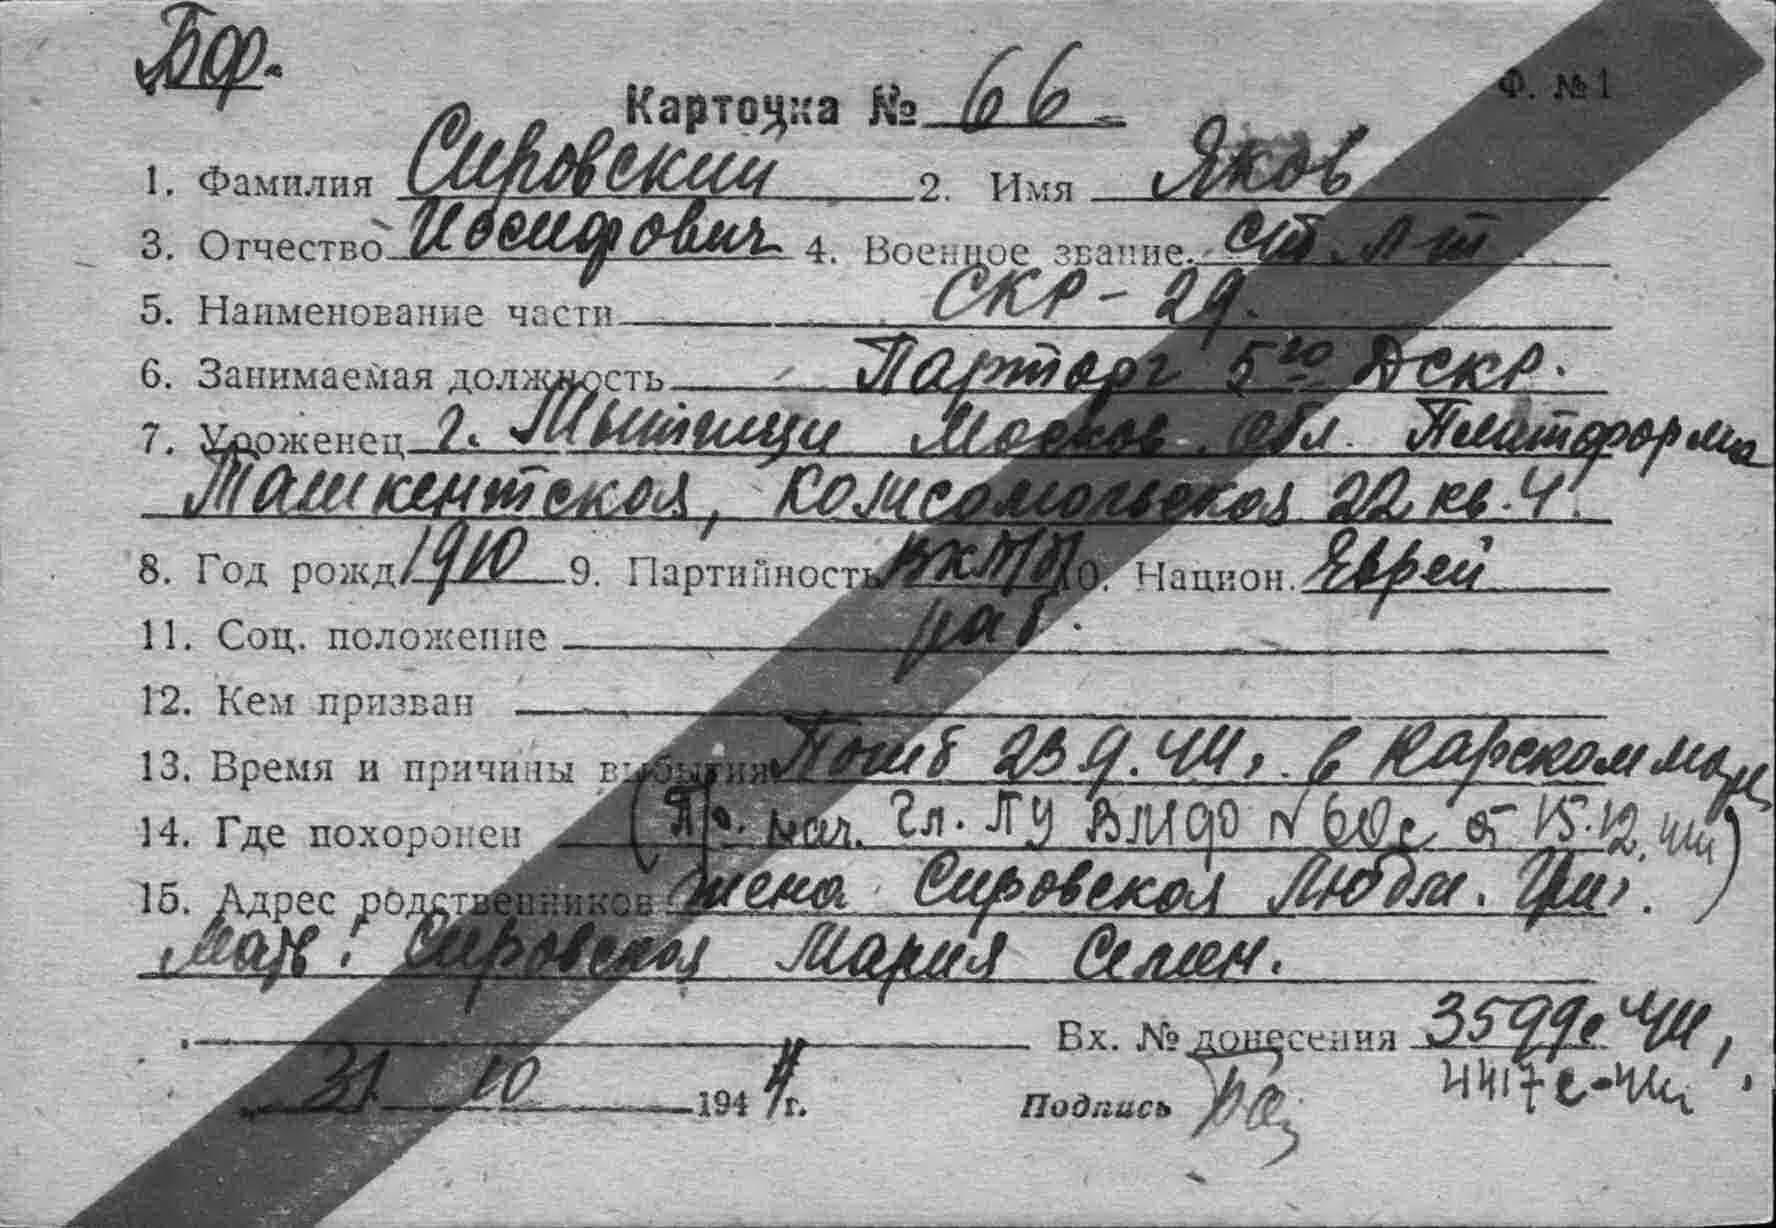 Бф.
Ф. №1
Карточка № 66
1. Фамилия Сировский 2. Имя Яков
3. Отчество Иосифович 4. Военное звание ст. л-т
5. Наименование части СКР-29.
6. Занимаемая должность Парторг 5го Дскр.
7. Уроженец г. Мытищи Москов. обл. Платформа
Ташкентская, Комсомольская 22 кв. 4.
8. Год рожд 1910 9. Партийность ВКП/б/ 10. Национ. Еврей
11. Соц. положение раб.
12. Кем призван
13. Время и причины выбытия Погиб 23.9.44г. в Карском море
14. Где похоронен (Пр. нач. Гл. ПУ ВМФ № 60с от 15.12.44)
15. Адрес родственников жена Сировская Людм. Григ.
Мать: Сировская Мария Семен.
Вх. № донесения 3599с 44г,
31 10 1944г. Подпись 4417с-44г